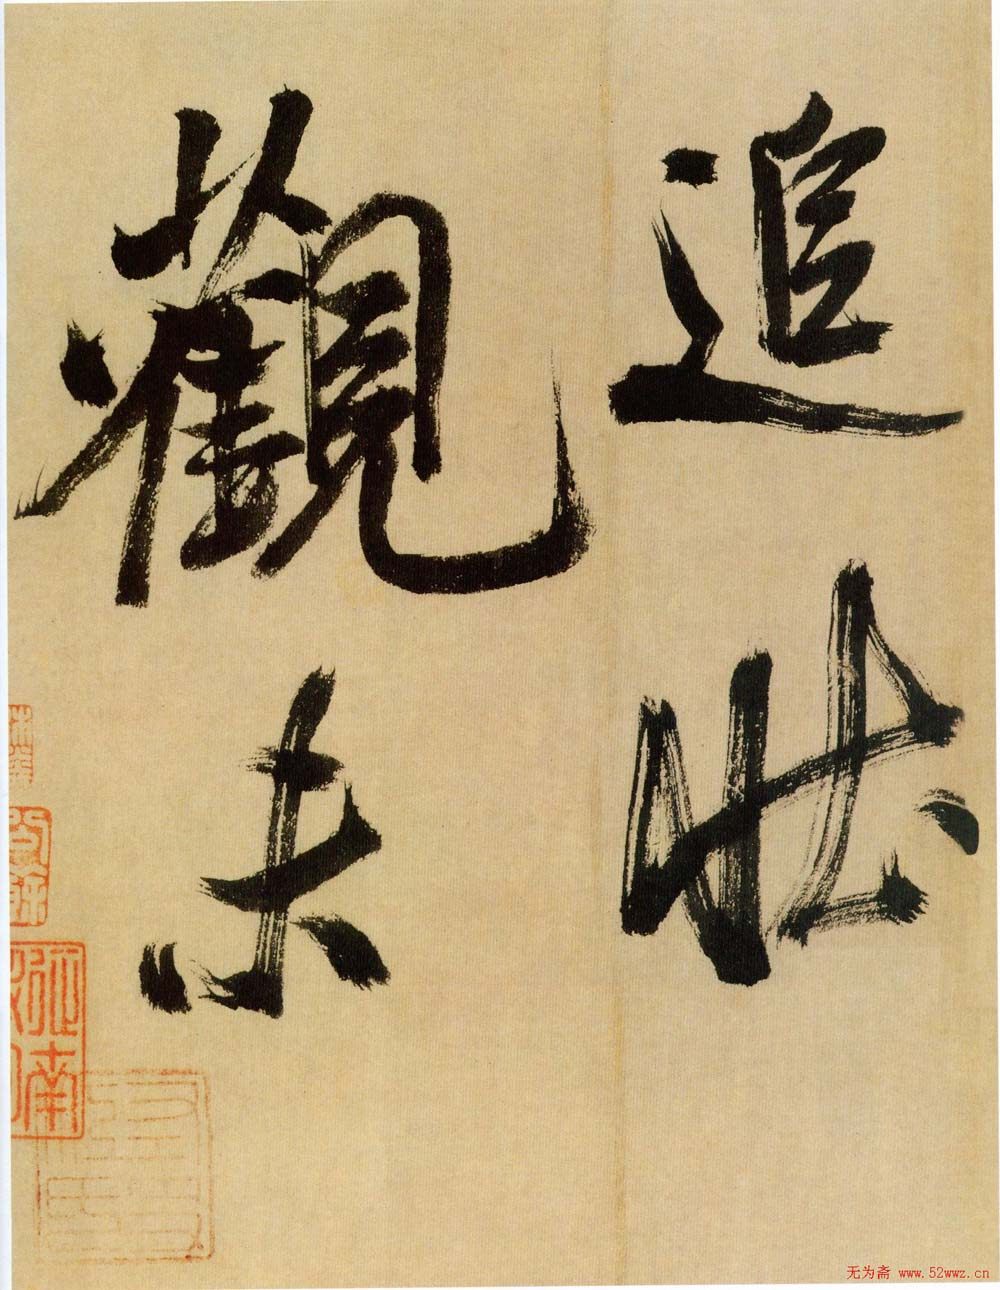 追狀
觀未
无为斋 www.52wwz.cn